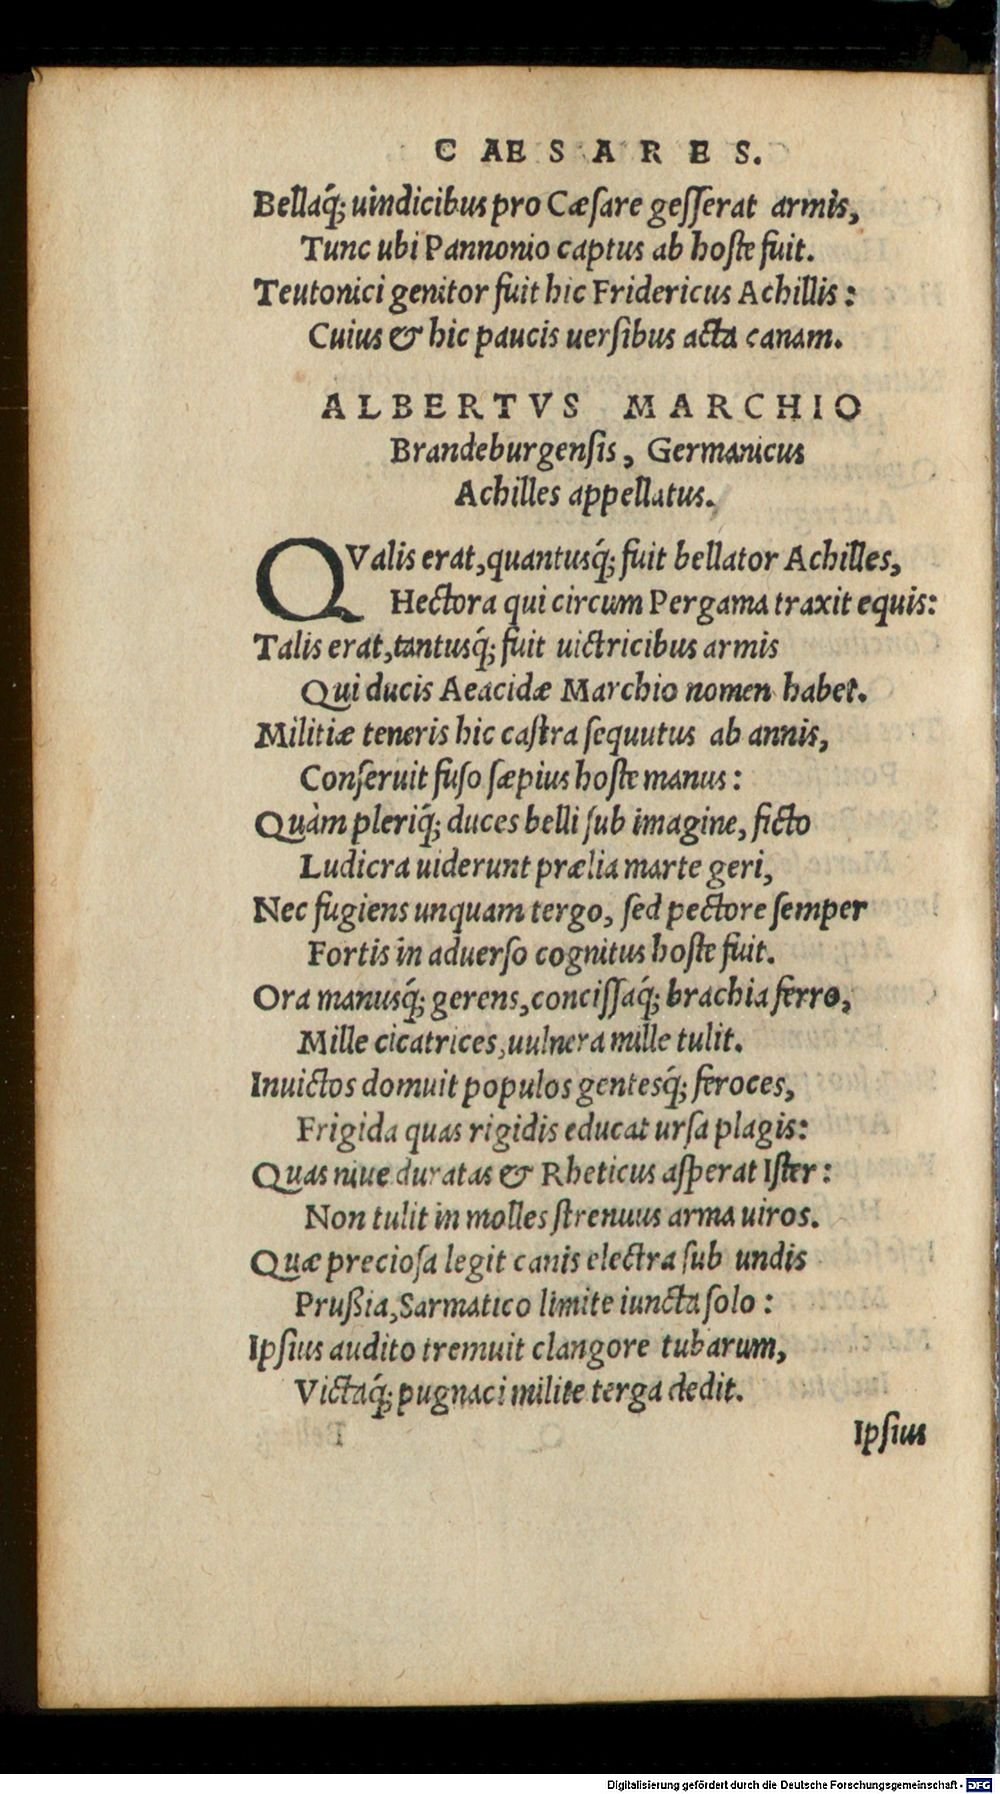 C AE S A R E S.
Bellaq́; uindicibus pro Cæſare geſſerat armis,
Tunc ubi Pannonio captus ab hoſte fuit.
Teutonici genitor fuit hic Fridericus Achillis:
Cuius & hic paucis uerſibus acta canam.
ALBERTVS MARCHIO
Brandeburgenſis, Germanicus
Achilles appellatus.
QValis erat, quantusq́; fuit bellator Achilles,
Hectora qui circum Pergama traxit equis:
Talis erat, tantusq́; fuit uictricibus armis
Qui ducis Aeacidæ Marchio nomen habet.
Militiæ teneris hic caſtra ſequutus ab annis,
Conſeruit fuſo ſæpius hoſte manus:
Quàm pleriq́; duces belli ſub imagine, ficto
Ludicra uiderunt prælia marte geri,
Nec fugiens unquam tergo, ſed pectore ſemper
Fortis in aduerſo cognitus hoſte fuit.
Ora manusq́; gerens, conciſſaq́; brachia ferro,
Mille cicatrices, uulnera mille tulit.
Inuictos domuit populos gentesq́; feroces,
Frigida quas rigidis educat urſa plagis:
Quas niue duratas & Rheticus aſperat Iſter:
Non tulit in molles ſtrenuus arma uiros.
Quæ precioſa legit canis electra ſub undis
Prußia, Sarmatico limite iuncta ſolo:
Ipſius audito tremuit clangore tubarum,
Victaq́; pugnaci milite terga dedit.
Ipſius
Digitalisierung gefördert durch die Deutsche Forschungsgemeinschaft - DFG